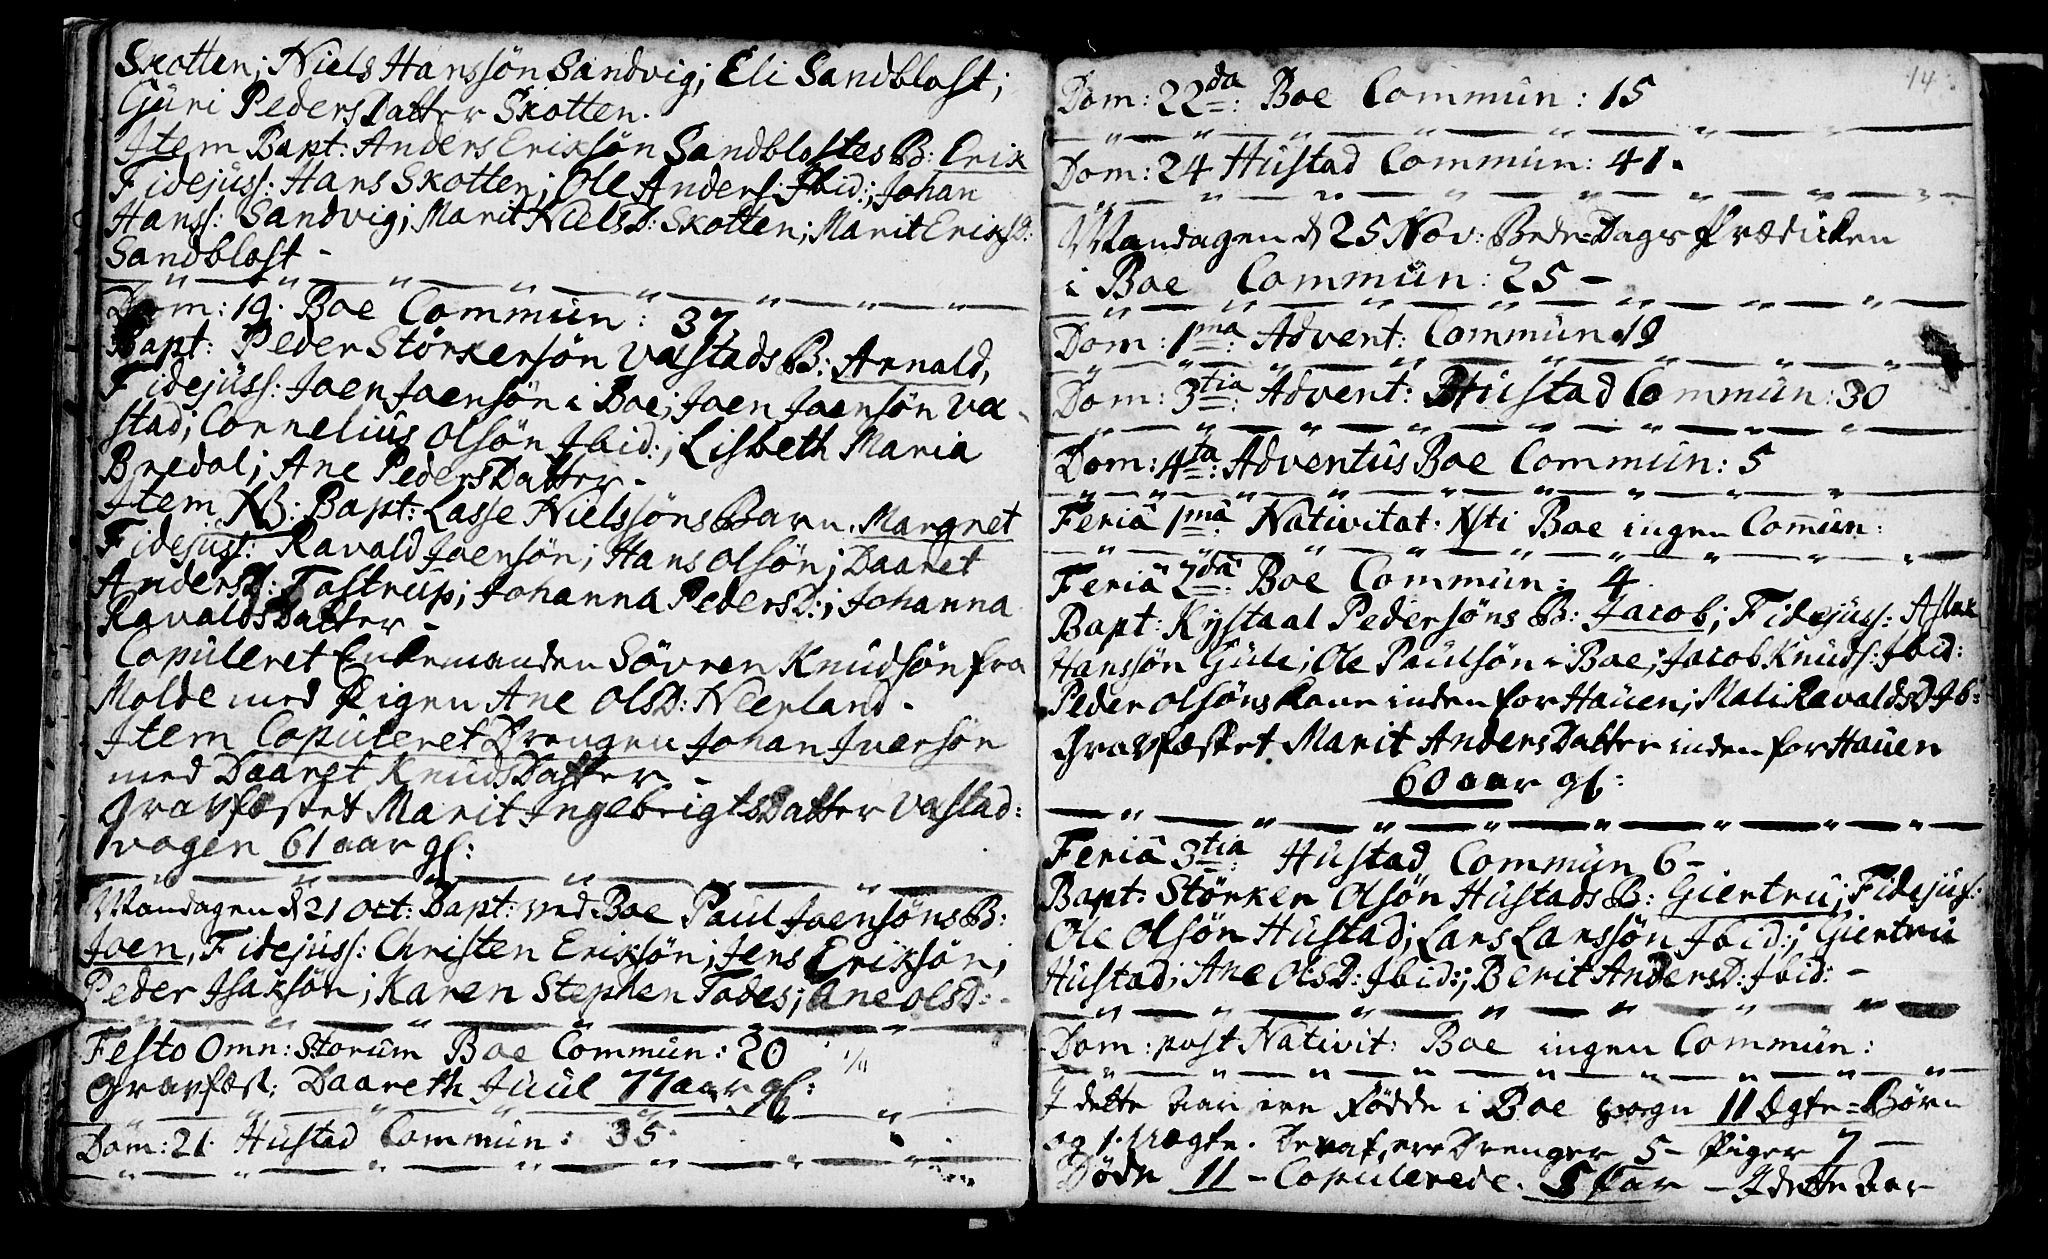 Skotten; Niels Hanssön Sandvig; Eli Sandblost;
Guri PedersDatter Skotten.
Item Bapt: Anders Eriksön Sandblostes B: Erik
Fidejuss: Hans Skotten; Ole Anders: Ibid:; Johan
Hanss: Sandvig; Marit NielsD: Skotten; Marit EriksD:
Sandblost -
Dom: 19. Boe Commun: 37.
Bapt: Peder Störkersön Vastads B: Arnald,
Fidejuss: Joen Joensön i Boe; Joen Joensön Va-
stad; Cornelius Olsön Ibid:; Lisbeth Maria
Bredal; Ane PedersDatter -
Item NB: Bapt: Lasse Nielssöns Barn. Margret
Fidejuss: Ravald Joensön; Hans Olsön; Daaret
AndersD: Tastrup; Johanna PedersD:; Johanna
RavaldsDatter -
Copuleret Enkemanden Sövren Knudsön fra
Molde med Pigen Ane OlsD: Neerland -
Item Copuleret Drengen Johan Iversön
med Daaret KnudsDatter -
Gravfæstet Marit IngebrigtsDatter Vastad:
vogen 61 aar gl:
Mandagen d 21 Oct: Bapt: ved Boe Paul Joensöns B:
Joen, Fidejuss: Christen Eriksön; Jens Eriksön;
Peder Isaksön; Karen Stephen Todes; Ane OlsD: -
Festo Omn: Storum Boe Commun: 20 1/11
Gravfæst: Daareth Juul 77 aar gl:
Dom: 21. Hustad Commun: 35.
14.
Dom: 22da: Boe Commun: 15
Dom: 24 Hustad Commun: 41.
Mandagen d 25 Nov: Bede-Dags Prædiken
i Boe Commun: 25 -
Dom: 1ma: Advent: Commun 19
Dom: 3tia: Advent: Hustad Commun: 30
Dom: 4ta: Adventus Boe Commun: 5
Feriâ 1mâ Nativitat: Xsti Boe ingen Comun:
Feriâ 2dâ: Boe Commun: 4.
Bapt: Kystaal Pedersöns B: Jacob; Fidejuss: Aslak
Hanssön Gule; Ole Paulsön i Boe; Jacob Knuds: Ibid:
Peder Olsöns Kone inden for Hauen; Mali RavaldsD Ib:
Gravfæstet Marit AndersDatter inden for Hauen
60 aar gl:
Feriâ 3tia: Hustad Commun 6 -
Bapt: Störker Olsön Hustads B: Giertru; Fidejus:
Ole Olsön Hustad; Lars Larssön Ibid:; Giertru
Hustad; Ane OlsD: Ibid:; Berit AndersD: Ibid: -
Dom: post Nativit: Boe ingen Commun:
I dette aar ere Födde i Boe sogn 11 Ægte-Börn
og 1. Uægte. Deraf ere Drenger 5 - Piger 7 -
Döde 11 - Copulerede. 5 Par - I dette aar